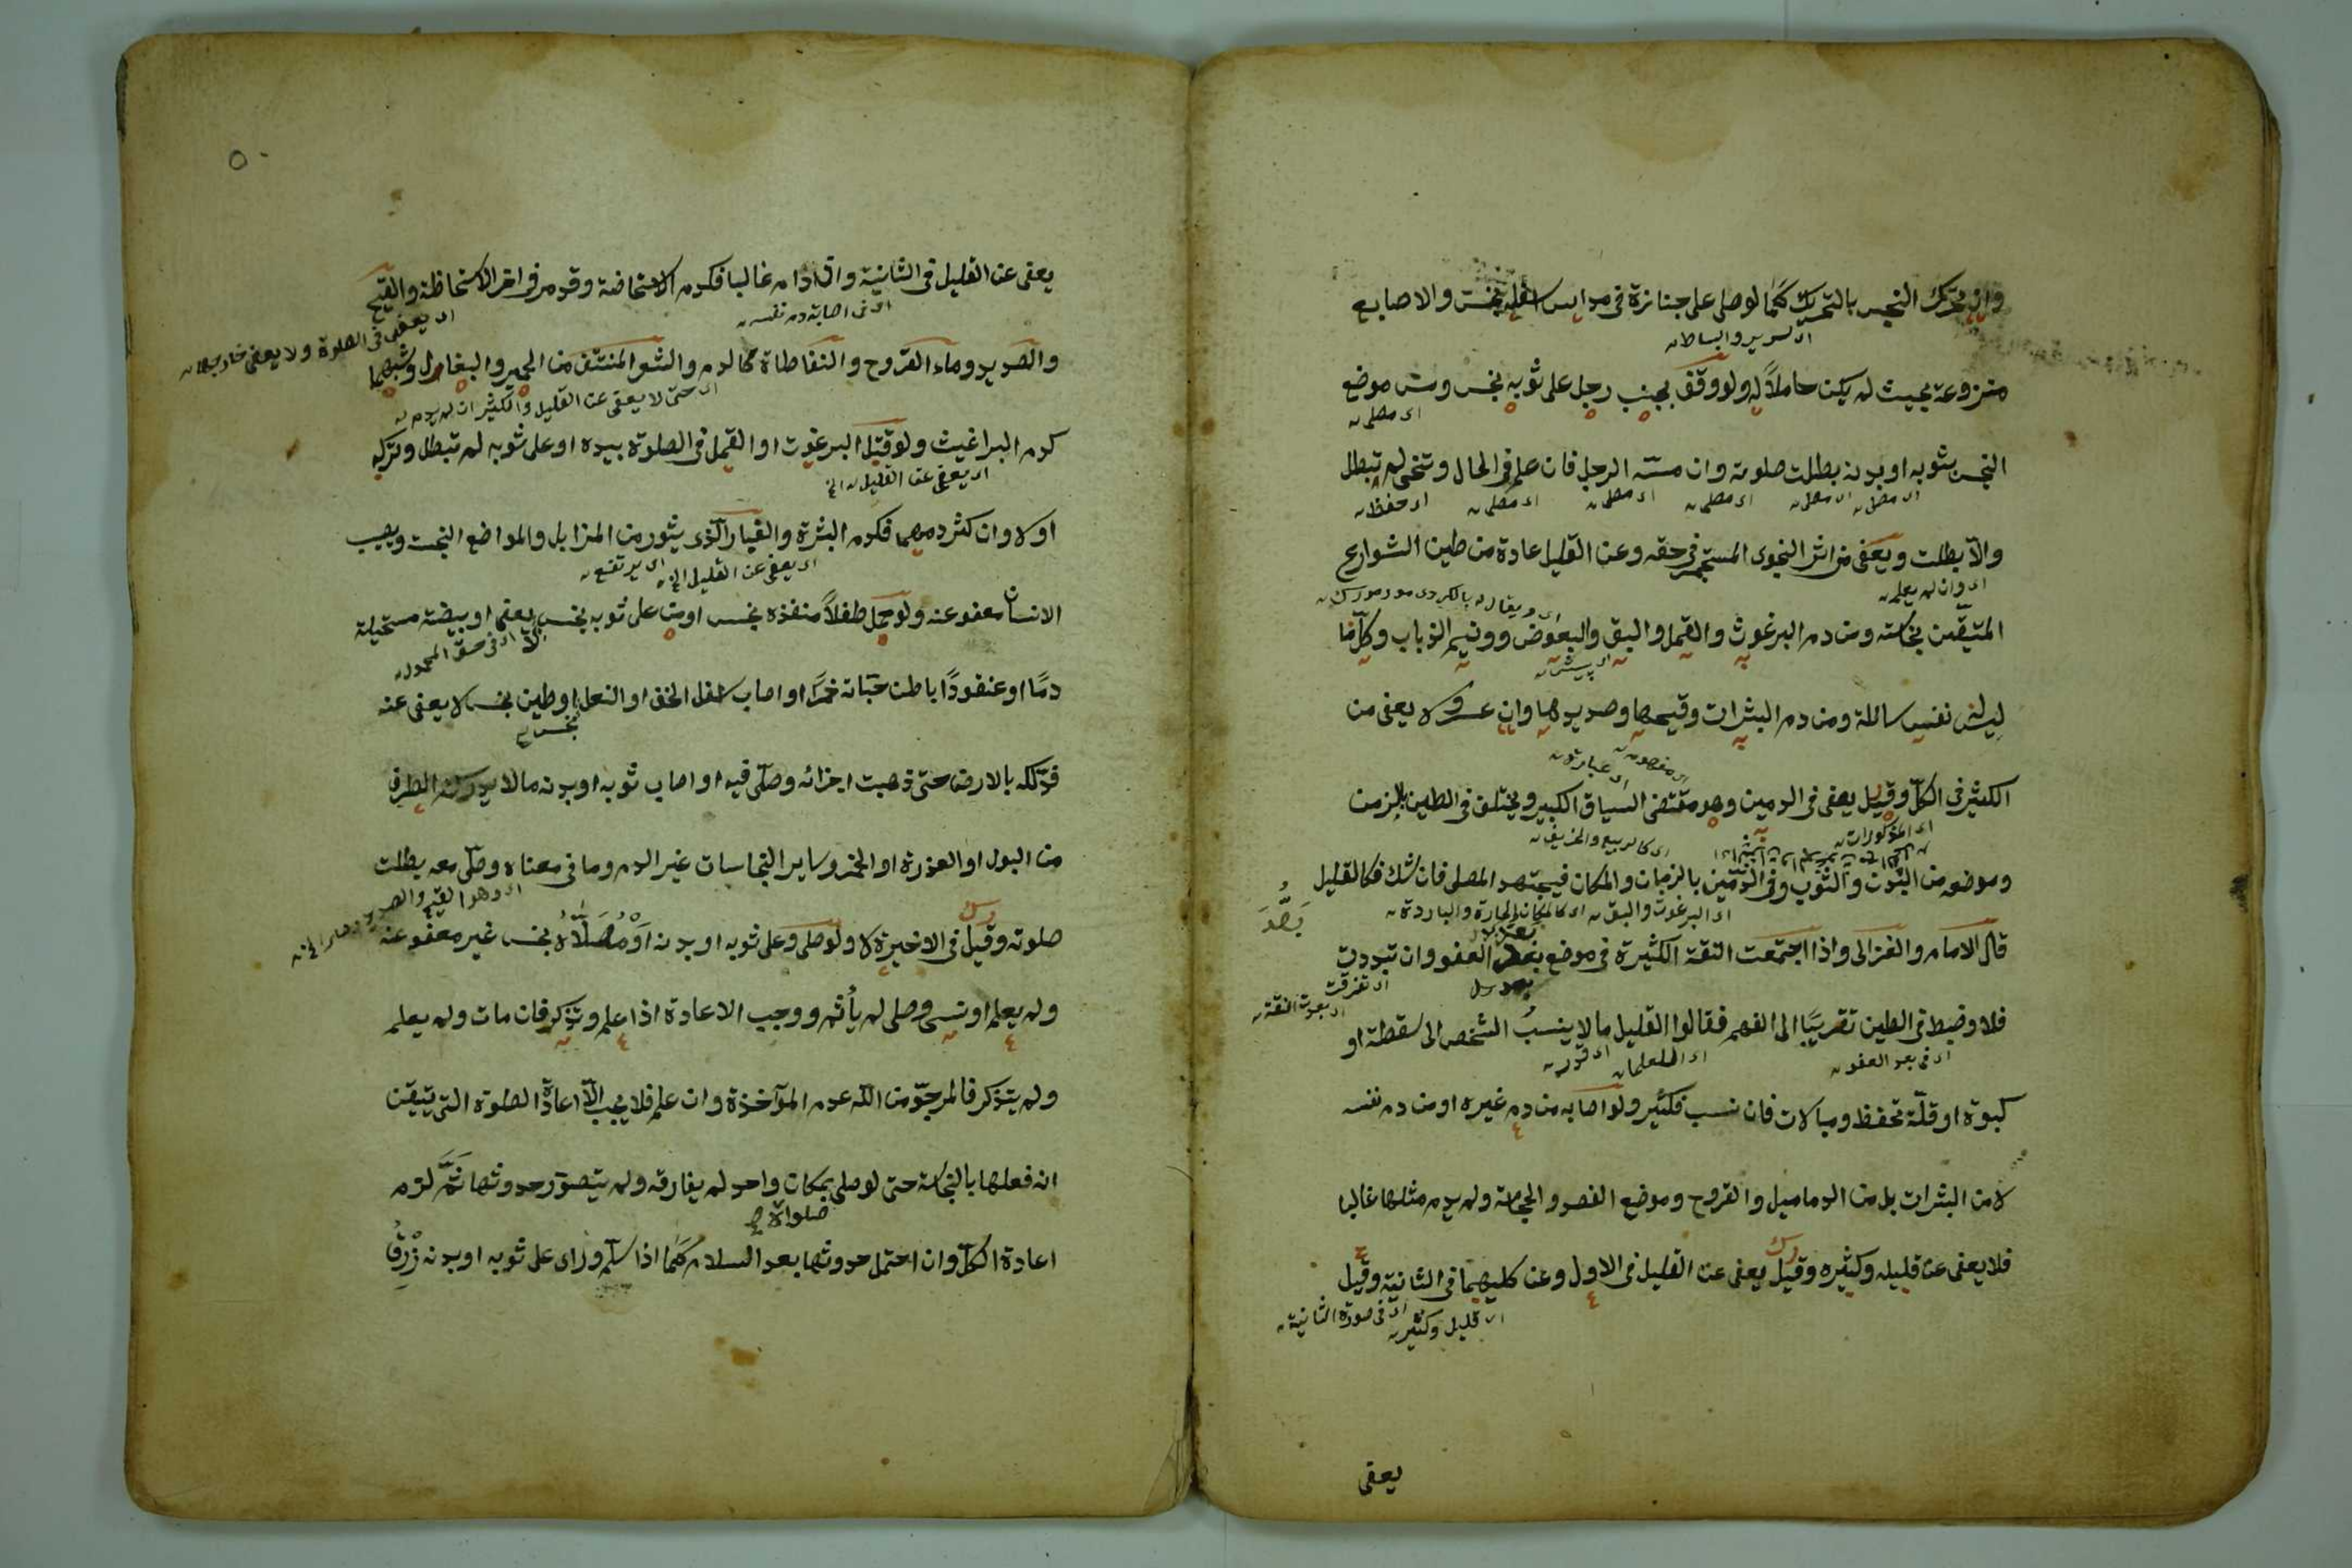 وان تحرك النجس بالتحريك كما لو صلى على جنازة في مداس اسفله نجس والاصابع
اى سرير والبساط
منزوعة بحيث لم يكن حاملا له ولو وقف بجنب رجل على ثوبه نجس ومس موضع
اى مصلى
النجس بثوبه او بدنه بطلت صلوته وان مسه الرجل فان علم في الحال وتنحى لم تبطل
اى مصلى اى مصلى اى مصلى اى مصلى اى مصلى اى حفظ
والا بطلت ويعفى من اثر النجو المستجمر في حقه وعن القليل عادة من طين الشوارع
اى وان لم يعلم
المتيقن نجاسته ومن دم البرغوث والقمل والبق والبعوض وونيم الذباب وكل ما
ليس له نفس سائلة ومن دم البثرات وقيحها وصديدها وان عسر ولا يعفى من
اى عبارة
الكثير في الكل وقيل يعفى في الدمين وهو مقتضى السياق الكبير ويختلف في الطين بالزمن
اى المذكورات اى كالربيع والخريف
وموضعه من البدن والثوب وفي الدمين بالزمان والمكان فيجتهد المصلى فان شك فكالقليل
اى البرغوث والبق اى كالمكان الحارة والباردة
قال الامام والغزالى واذا اجتمعت النقة الكثيرة في موضع بعد العفو وان تبددت
اى تفرقت
فلا وضبط في الطين تقريبا الى الفهم فقالوا القليل ما لا ينسب الشخص الى سقطة او
اى في بعد العفو
كبوة او قلة تحفظ ومبالات فان نسب فكثير ولو اصابه من دم غيره او من دم نفسه
لا من البثرات بل من الدماميل والقروح وموضع الفصد والحجامة ولم يدم مثلها غالبا
فلا يعفى عن قليله وكثيره وقيل يعفى عن القليل في الاول وعن كليهما في الثانية وقيل
اى قليل وكثير اى في صورة الثانية
يعفى
٥٠
يعفى عن القليل في الثانية وان دام غالبا فكدم الاستحاضة وقد مر في اخر الاستحاظة والقيح
اى في اصابة دم نفسه
اى يعفى في الصلوة ولا يعفى خارجها
والصديد وماء القروح والنفاطاة كالدم والشعر المنتتف من الحمير والبغال وشبههما
اى حتى لا يعفى عن القليل والكثير ان لم يدم
كدم البراغيث ولو قتل البرغوث او القمل في الصلوة بيده او على ثوبه لم تبطل وتركه
اى يعفى عن القليل الخ
اولا وان كثر دمهما فكدم البثرة والغبار الذى يثور من المزابل والمواضع النجسة ويصيب
اى يعفى عن القليل الخ اى يرتفع
الانسان معفو عنه ولو حمل طفلا منفذه نجس او من على ثوبه نجس يعفى او بيضة مستحيلة
الا اى في حق المحمول
دما او عنقودا باطن حباته خمرا او اصاب اسفل الخف او النعل او طين نجس لا يعفى عنه
نجس
فدلكه بالارض حتى ذهبت اجزائه وصلى فيه او اصاب ثوبه او بدنه ما لا يدركه الطرف
من البول او العذرة او الخمر وساير النجاسات غير الدم وما في معناه وصلى معه بطلت
اى وهو القيح والصديد
صلوته وقيل في الاخيرة لا ولو صلى وعلى ثوبه او بدنه او مصلاه نجس غير معفو عنه
ولم يعلم او نسى وصلى لم يأثم ووجب الاعادة اذا علم وتذكر فان مات ولم يعلم
ولم يتذكر فالمرجو من الله عدم المؤآخذة وان علم فلا يجب الا اعادة الصلوة التى تيقن
انه فعلها بالنجاسة حتى لو صلى بمكان واحد لم يفارقه ولم يتصور حدوثها ثم لزم
اعادة الكل وان احتمل حدوثها بعد السلام كما اذا سلم وراى على ثوبه او بدنه ذرق